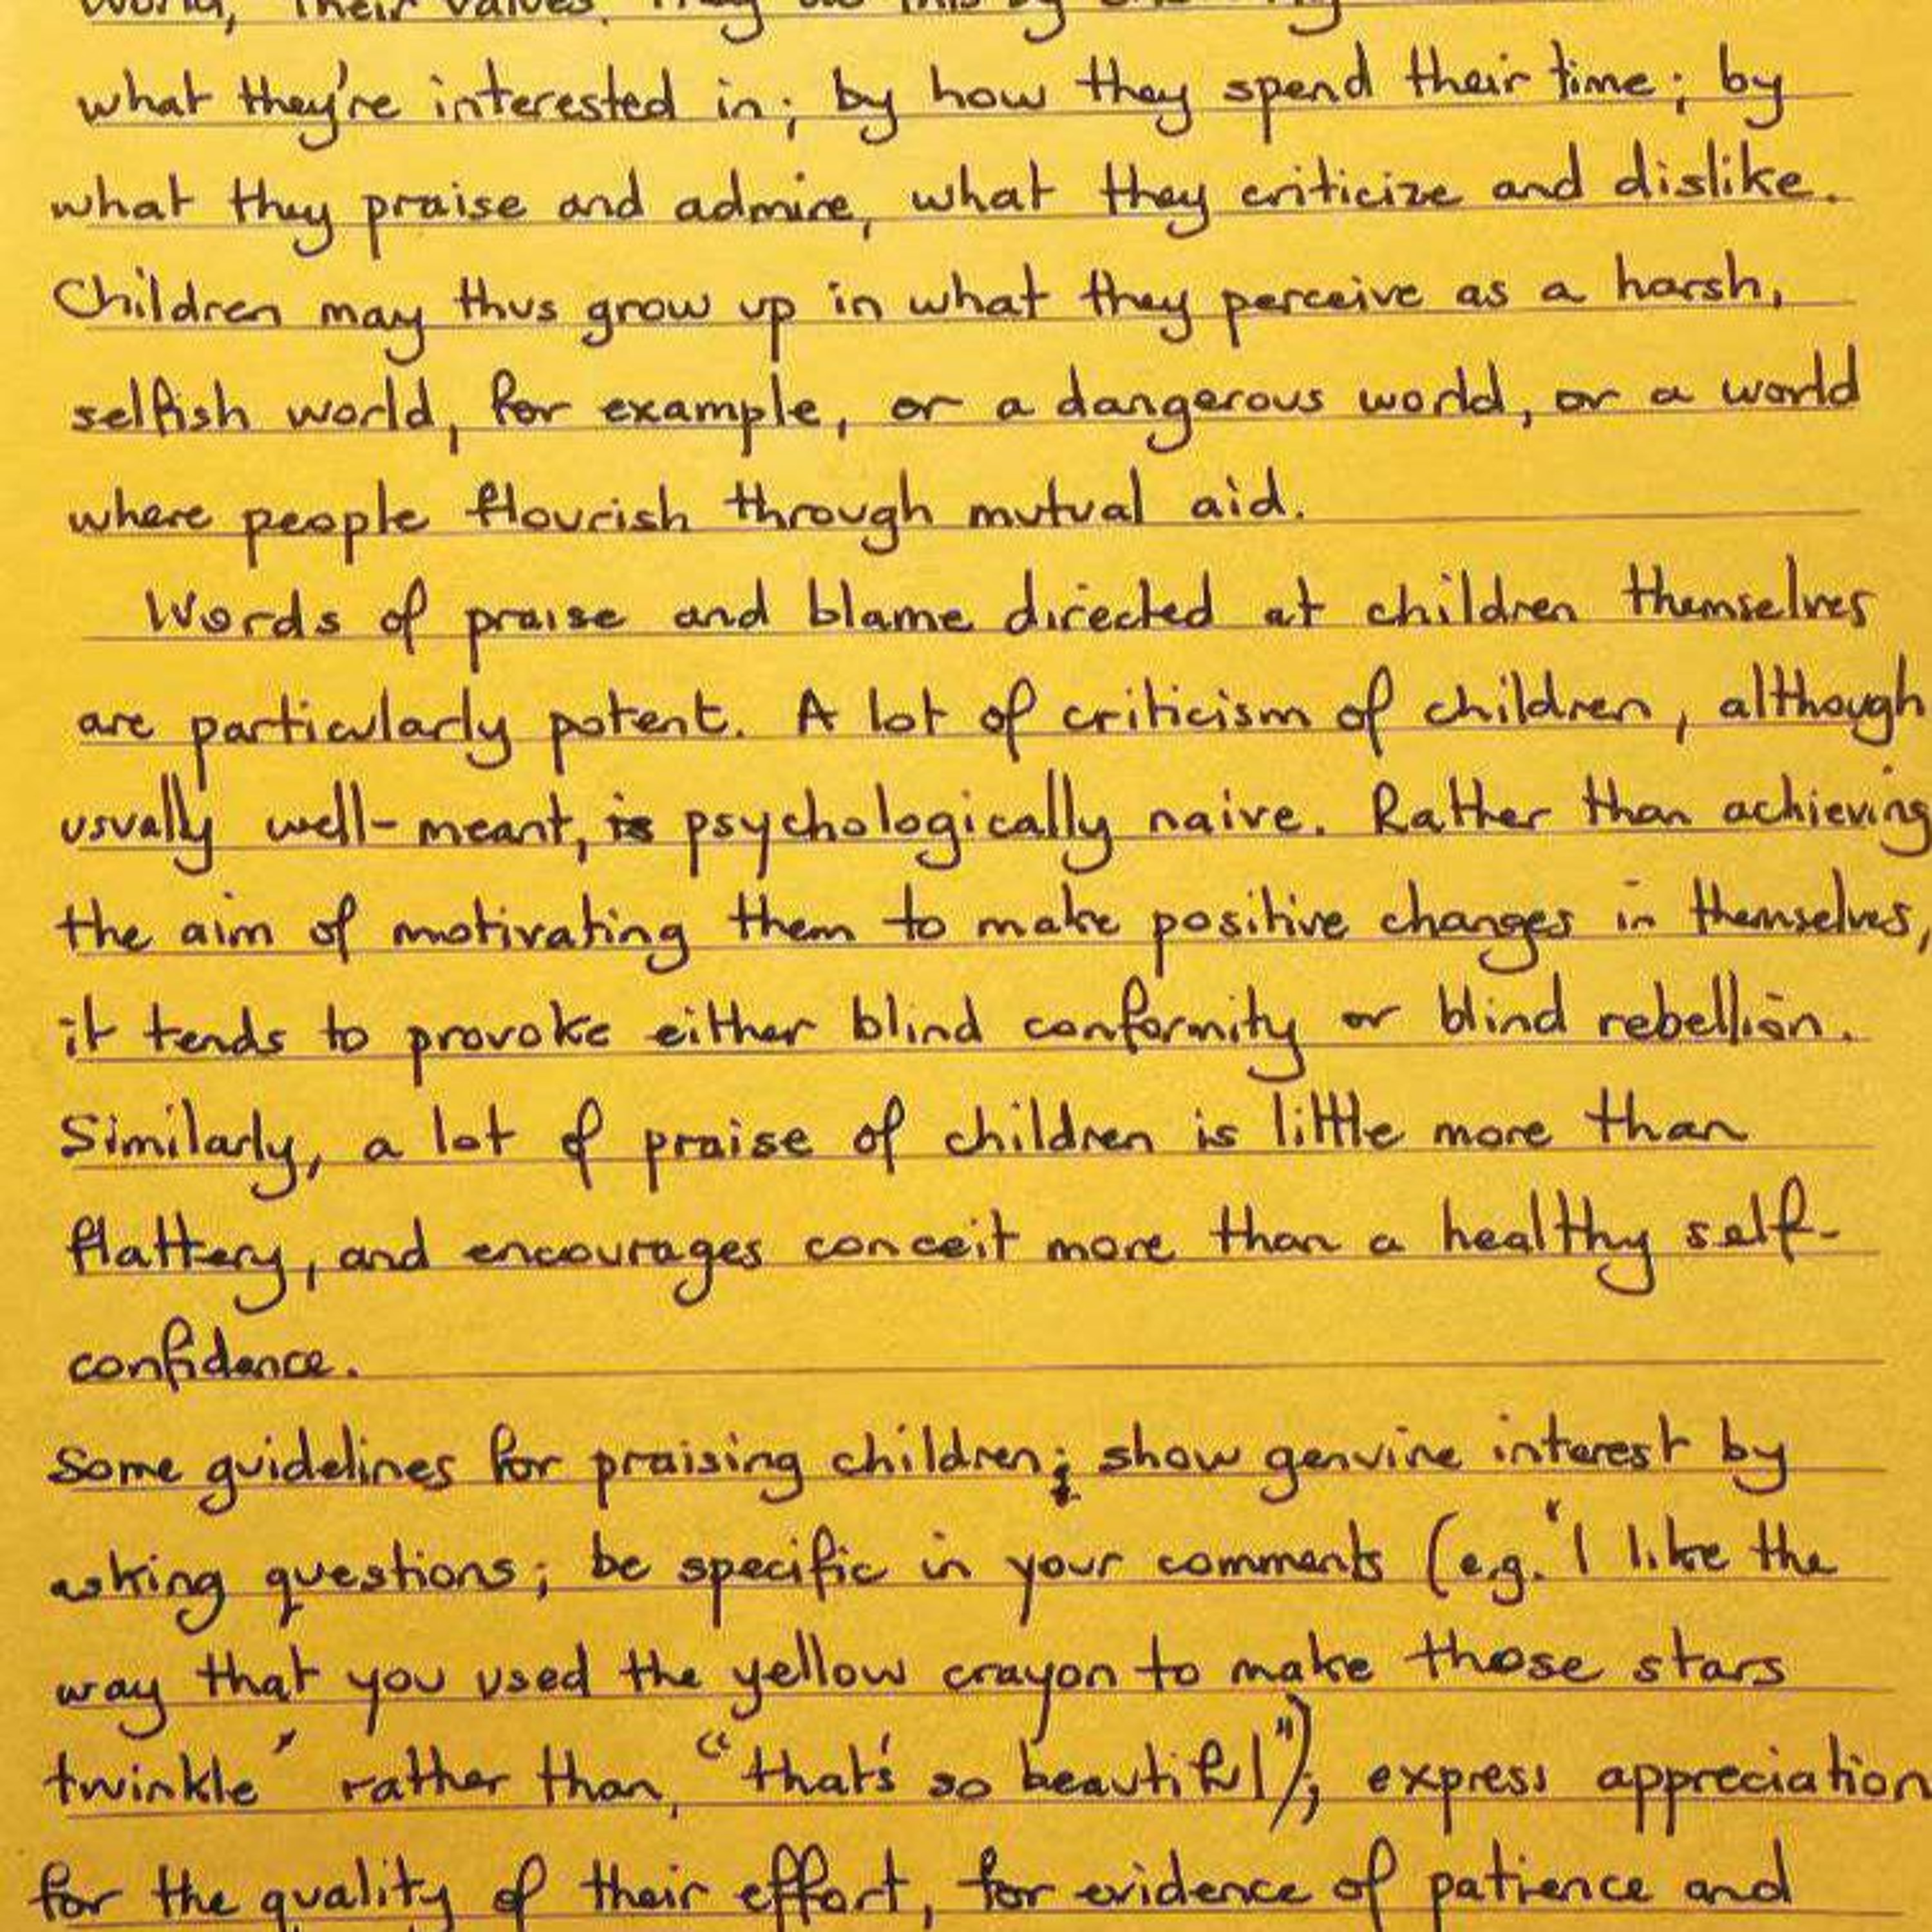 world, their values. They do this by
what they're interested in; by how they spend their time; by
what they praise and admire, what they criticize and dislike.
Children may thus grow up in what they perceive as a harsh,
selfish world, for example, or a dangerous world, or a world
where people flourish through mutual aid.
Words of praise and blame directed at children themselves
are particularly potent. A lot of criticism of children, although
usually well-meant, is psychologically naive. Rather than achieving
the aim of motivating them to make positive changes in themselves,
it tends to provoke either blind conformity or blind rebellion.
Similarly, a lot of praise of children is little more than
flattery, and encourages conceit more than a healthy self-
confidence.
Some guidelines for praising children; show genuine interest by
asking questions; be specific in your comments (e.g. "I like the
way that you used the yellow crayon to make those stars
twinkle" rather than, "that's so beautiful"); express appreciation
for the quality of their effort, for evidence of patience and